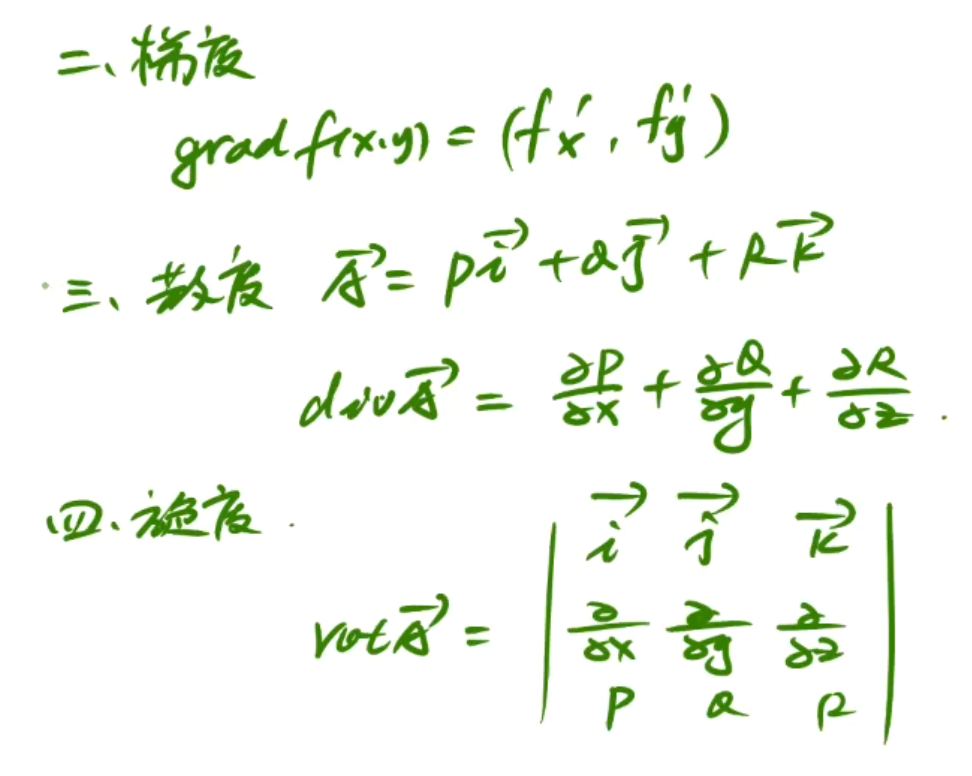 二、梯度
grad f(x,y) = (f'ₓ, f'ᵧ)
三、散度 \vec{A} = P\vec{i} + Q\vec{j} + R\vec{k}
div \vec{A} = \frac{∂P}{∂x} + \frac{∂Q}{∂y} + \frac{∂R}{∂z}.
四、旋度.
rot \vec{A} = \begin{vmatrix} \vec{i} & \vec{j} & \vec{k} \\ \frac{∂}{∂x} & \frac{∂}{∂y} & \frac{∂}{∂z} \\ P & Q & R \end{vmatrix}